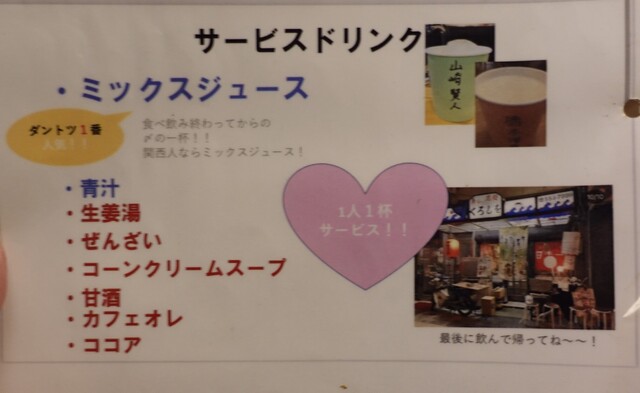 サービスドリンク
・ミックスジュース
ダントツ1番
人気！！
食べ飲み終わってからの
〆の一杯！！
関西人ならミックスジュース！
・青汁
・生姜湯
・ぜんざい
・コーンクリームスープ
・甘酒
・カフェオレ
・ココア
1人1杯
サービス！！
山崎賢人
くろしち
最後に飲んで帰ってね〜〜！